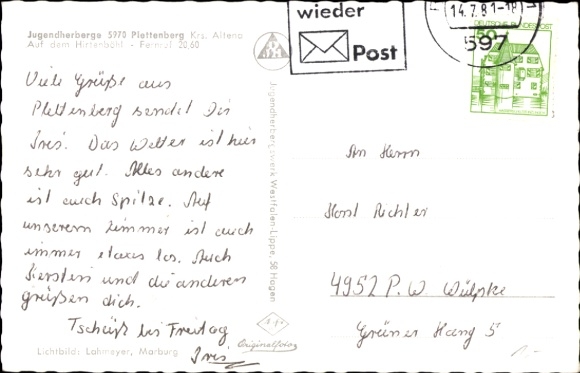 Jugendherberge 5970 Plettenberg Krs. Altena
Auf dem Hirtenböhl - Fernruf 20,60
Viele Grüße aus
Plettenberg sendet Dir
Ines. Das Wetter ist hier
sehr gut. Alles andere
ist auch Spitze. Auf
unserem Zimmer ist auch
immer etwas los. Auch
Kerstin und die anderen
grüßen dich.
Tschüß bis Freitag
Ines
Lichtbild: Lahmeyer, Marburg
Jugendherbergswerk Westfalen-Lippe, 58 Hagen
Originalfoto
wieder
Post
14.7.81-18
597
DEUTSCHE BUNDESPOST
50
An Herrn
Horst Richter
4952 P.W. Wülpke
Grüner Hang 5